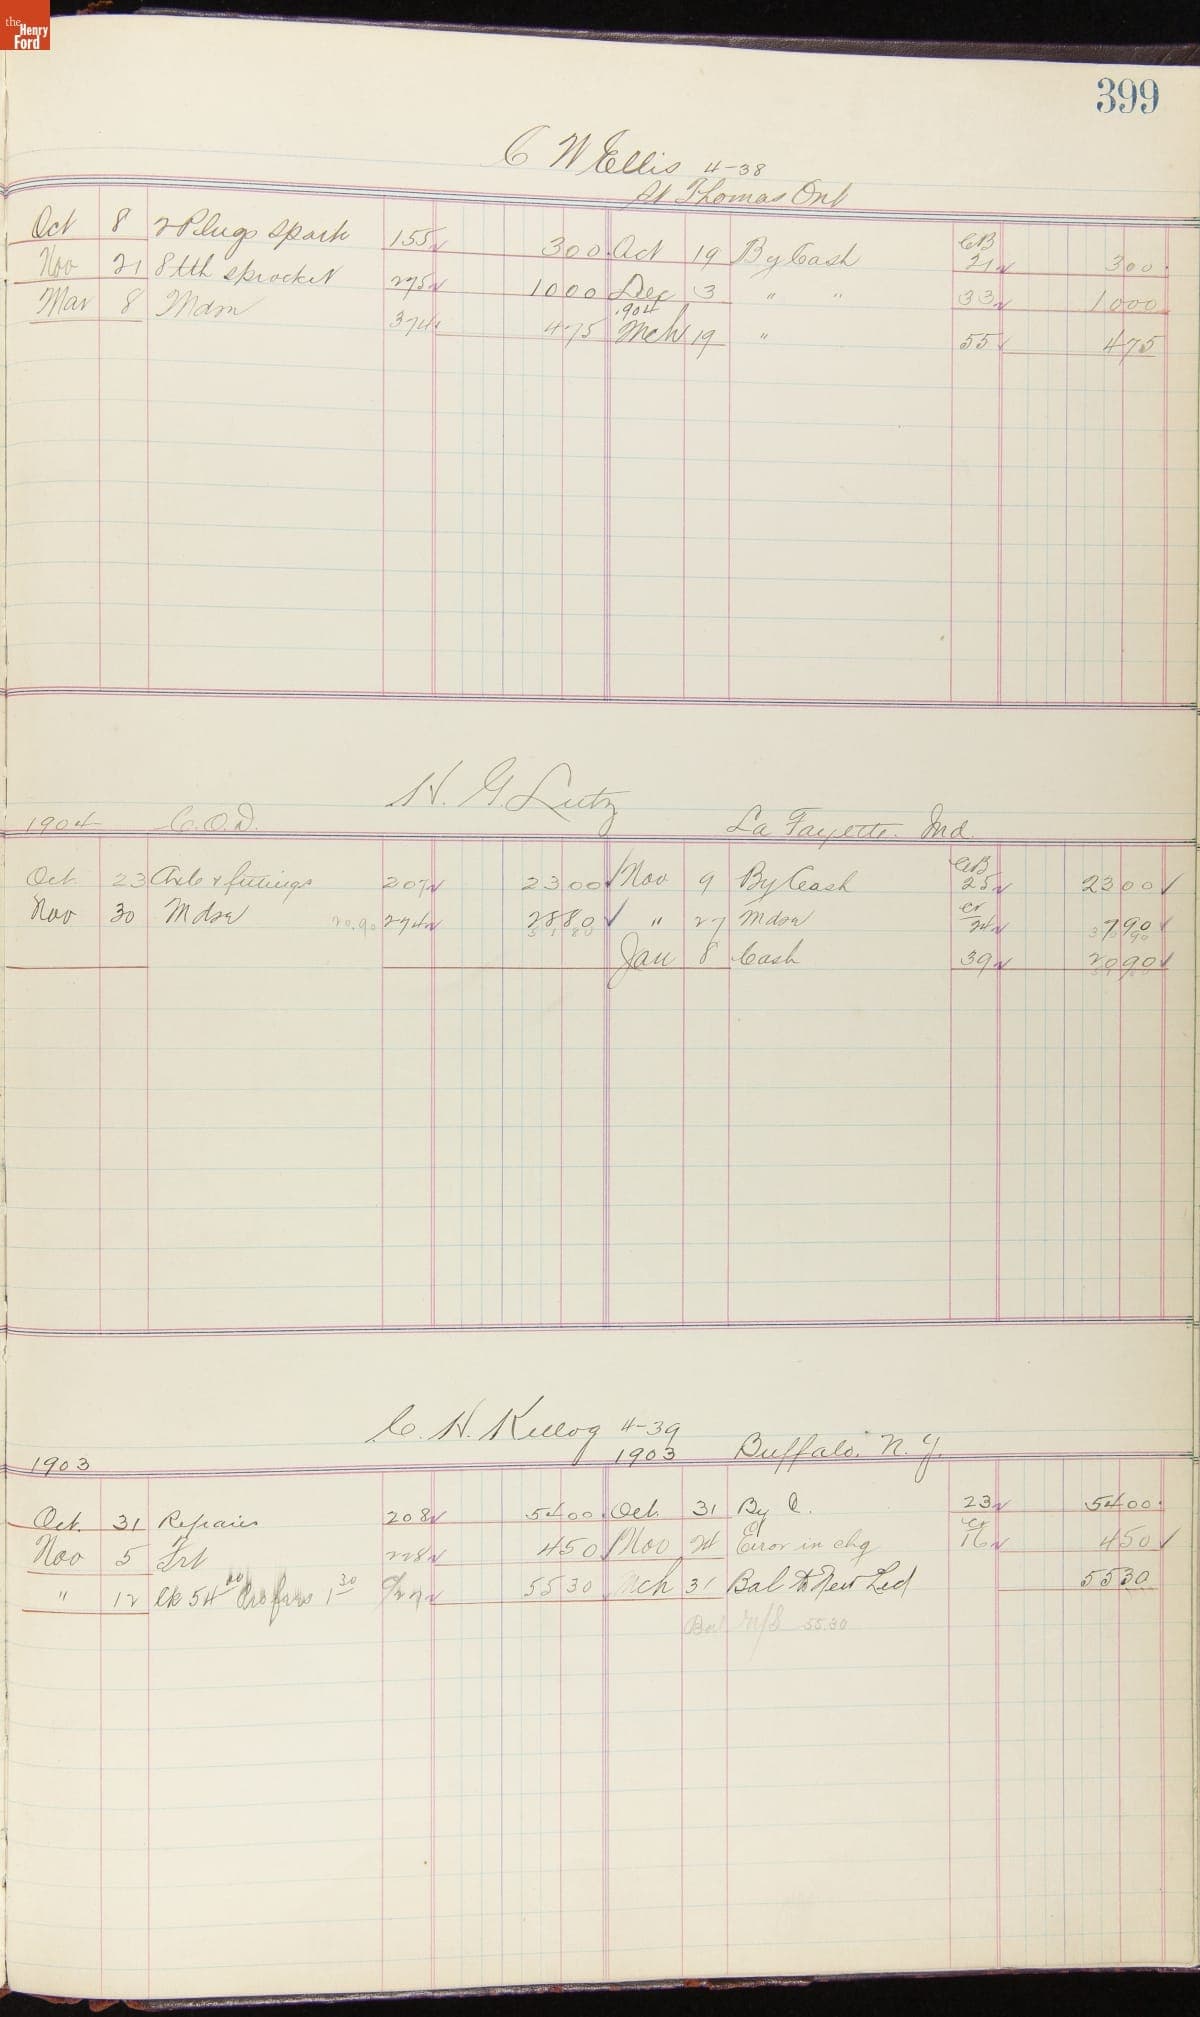 the Henry Ford
399
C W Ellis 4-38
St Thomas Ont
Oct 8 2 Plugs Spark 155 300 Oct 19 By Cash CB 21 300
Nov 21 8 tth sprocket 275 1000 Dec 3 " " 33 1000
Mar 8 Mdse 374 475 1904 Mch 19 " 55 475
H. G. Lutz
1904 C.O.D. La Fayette Ind.
Oct. 23 Axle & fittings 207 2300 Nov 9 By Cash CB 25 2300
Nov 30 Mdse 20.90 274 2880 " 27 Mdse Cr 24 790
5180 3090
Jan 8 Cash 39 2090
C. H. Kellog 4-39
1903 1903 Buffalo. N. Y.
Oct. 31 Repairs 208 5400 Oct. 31 By C. 23 5400
Nov 5 Frt 228 450 Nov 24 Error in chg Cr 16 450
" 12 Ck 54 00 1 30 5530 Mch 31 Bal to New Led 5530
Bal 55.30